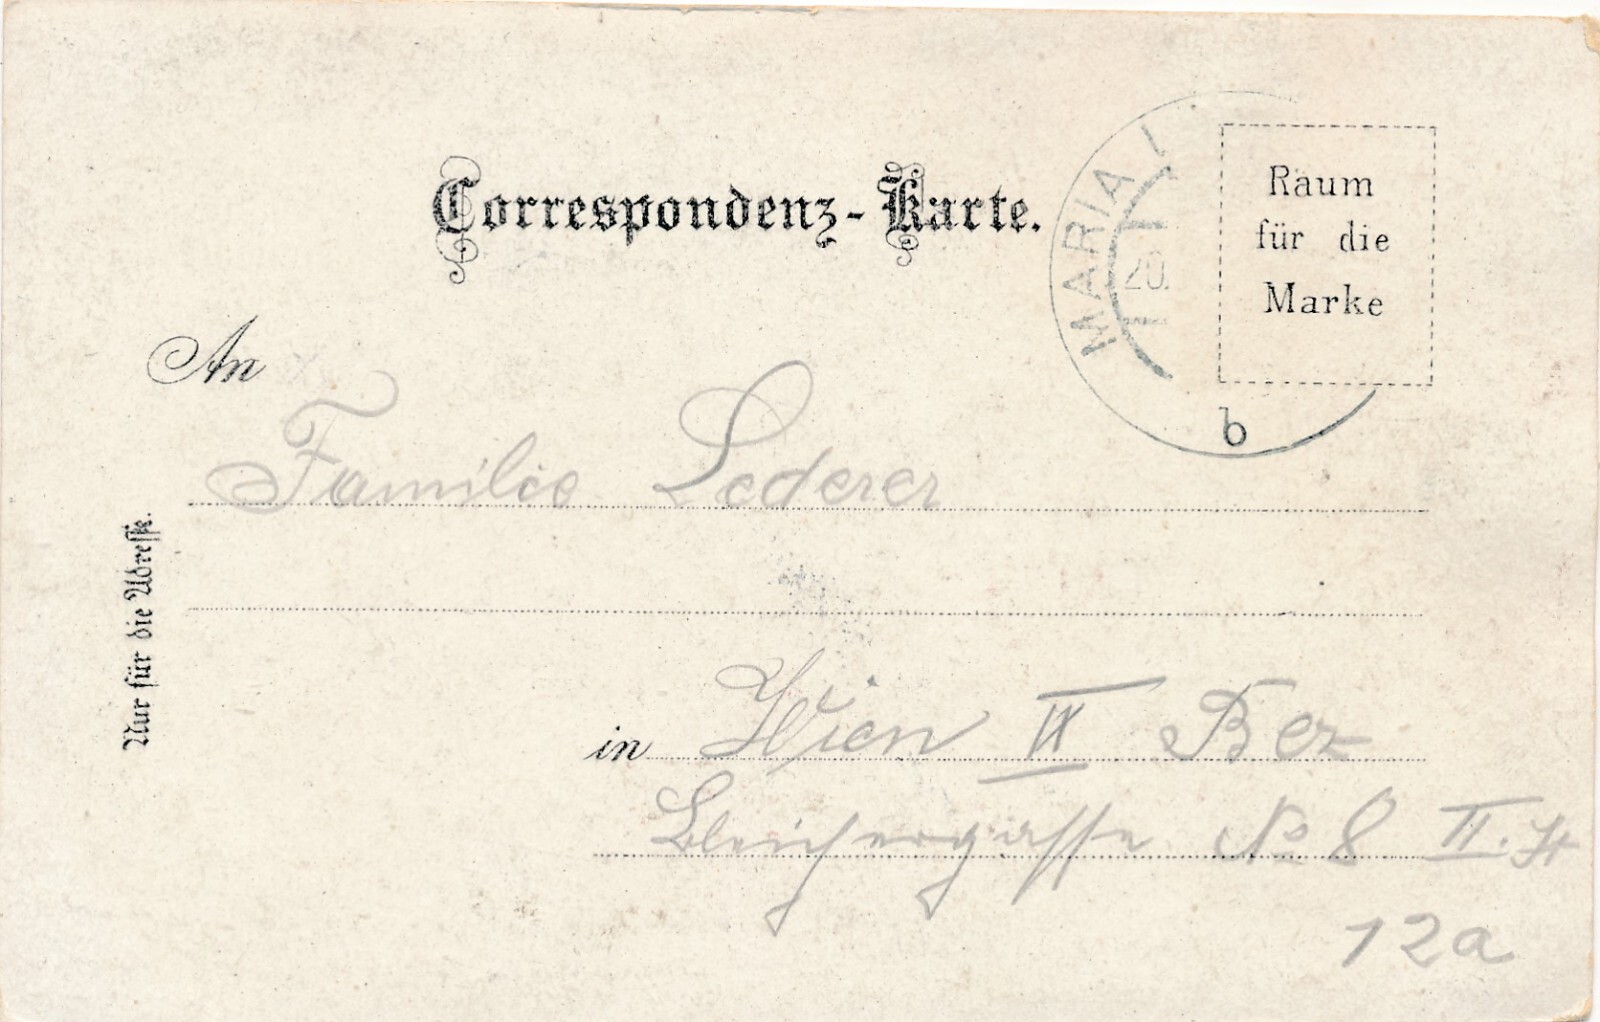 Correspondenz-Karte.
MARIA
20.
b
Raum
für die
Marke
An
Familie Lederer
Nur für die Adresse.
in Wien IX Bez
Bleichergasse No 8 II. St
12a